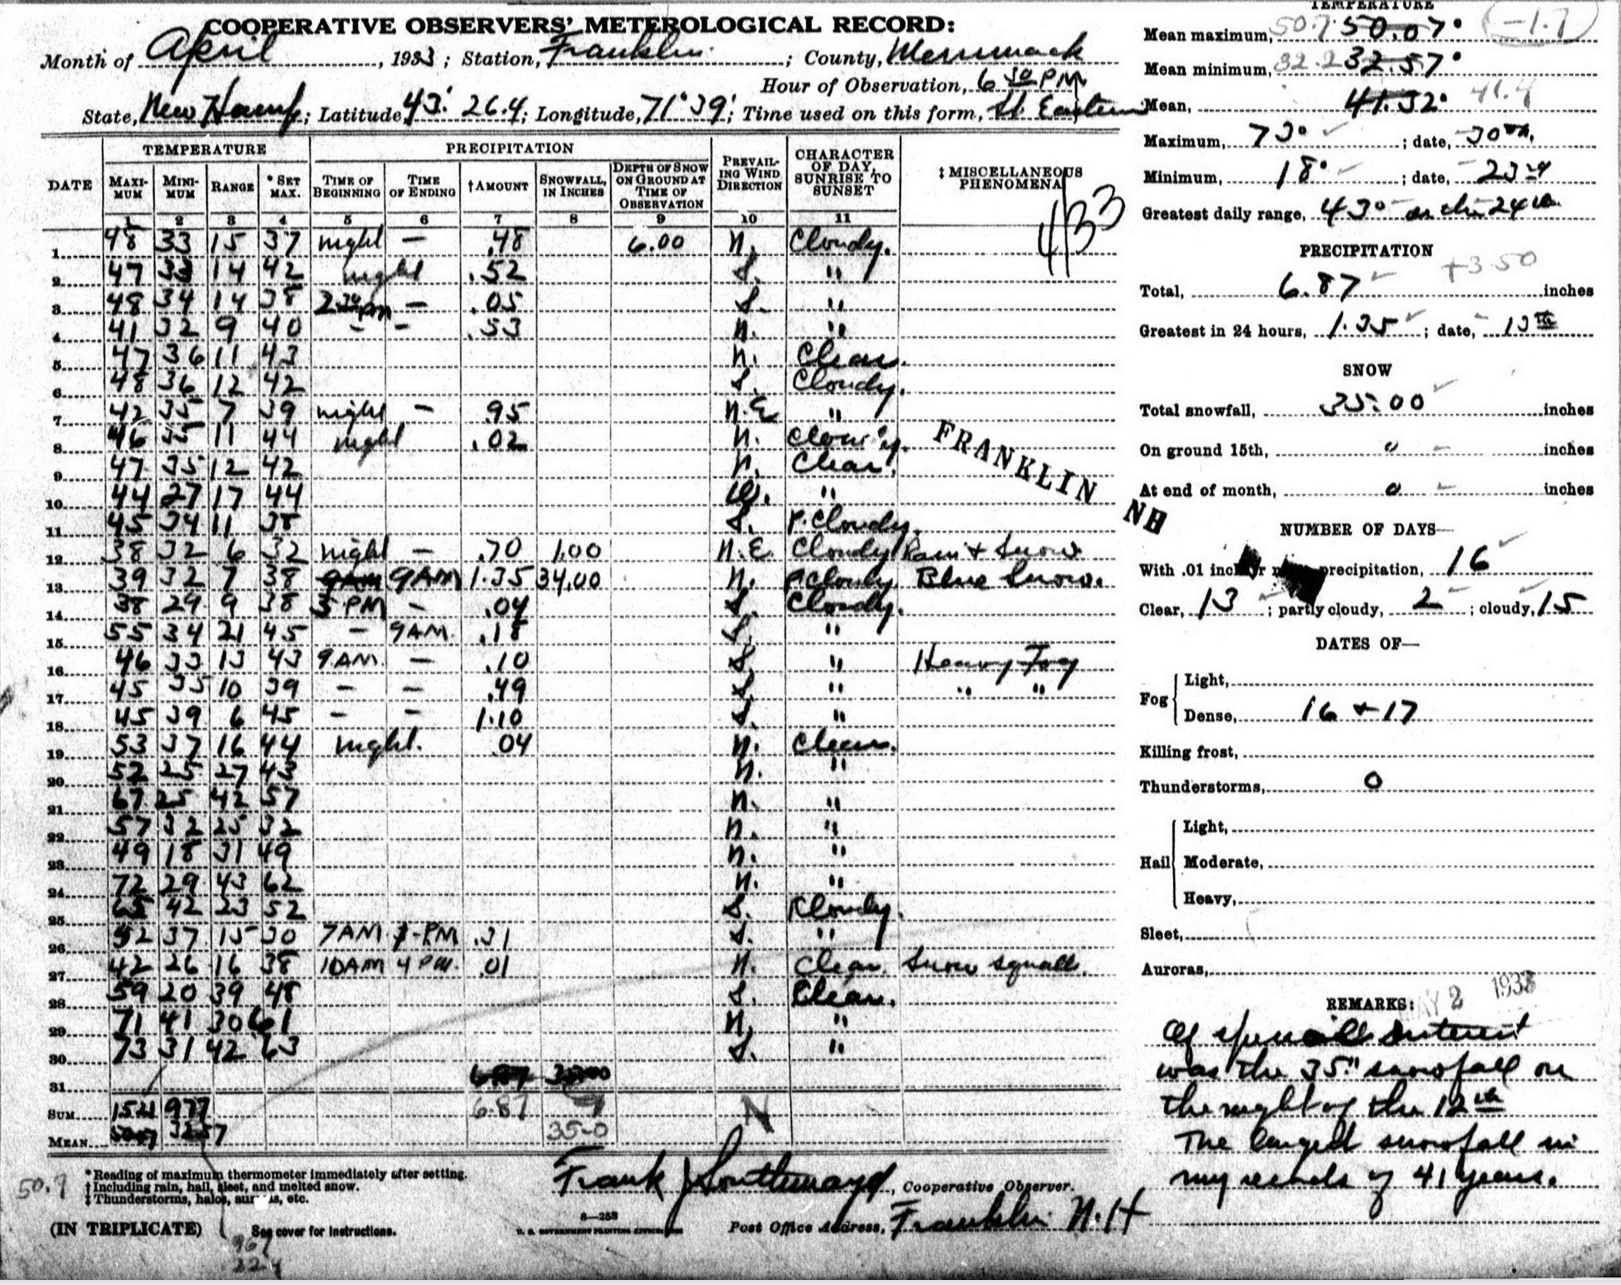 COOPERATIVE OBSERVERS' METEROLOGICAL RECORD:
Month of April, 1933; Station, Franklin; County, Merrimack
Hour of Observation, 6 30 PM
State, New Hamp; Latitude 43° 26.4; Longitude, 71° 39'; Time used on this form, St Eastern
DATE TEMPERATURE PRECIPITATION PREVAILING WIND DIRECTION CHARACTER OF DAY, SUNRISE TO SUNSET ‡ MISCELLANEOUS PHENOMENA
MAXIMUM MINIMUM RANGE *SET MAX. TIME OF BEGINNING TIME OF ENDING † AMOUNT SNOWFALL, IN INCHES DEPTH OF SNOW ON GROUND AT TIME OF OBSERVATION
1 2 3 4 5 6 7 8 9 10 11
4/33
1 48 33 15 37 night — .48 6.00 N. Cloudy.
2 47 33 14 42 night .52 S. "
3 48 34 14 38 2 30 PM — .05 S. "
4 41 32 9 40 - - .53 N. "
5 47 36 11 43 N. Clear.
6 48 36 12 42 S. Cloudy.
7 42 35 7 39 night — .95 N.E "
8 46 35 11 44 night .02 N. Cloudy.
9 47 35 12 42 N. Clear.
10 44 27 17 44 W. "
11 45 34 11 38 S. P. Cloudy.
12 38 32 6 32 night — .70 1.00 N.E. Cloudy Rain + Snow
13 39 32 7 38 9AM 9AM 1.35 34.00 N. P. Cloudy Blue Snow.
14 38 29 9 38 5 PM — .04 S. Cloudy.
15 55 34 21 45 — 9AM. .18 S. "
16 46 33 13 43 9AM. — .10 S. " Heavy Fog
17 45 35 10 39 — — .49 S. " " "
18 45 39 6 45 — — 1.10 S. "
19 53 37 16 44 night. .04 N. Clear.
20 52 25 27 43 N. "
21 67 25 42 57 N. "
22 57 32 25 32 N. "
23 49 18 31 49 N. "
24 72 29 43 62 N. "
25 65 42 23 52 S. Cloudy.
26 52 37 15 30 7AM 3-PM .31 S. "
27 42 26 16 38 10AM 4 PM. .01 N. Clear. Snow squall.
28 59 20 39 48 S. Clear.
29 71 41 30 61 N. "
30 73 31 42 63 S. "
31 6.87
SUM 1521 977 6.87 N
MEAN 35-0
FRANKLIN NH
*Reading of maximum thermometer immediately after setting.
†Including rain, hail, sleet, and melted snow.
‡Thunderstorms, halos, etc.
50.7
(IN TRIPLICATE) See cover for instructions.
Frank J Southmayd, Cooperative Observer.
8—258
U. S. GOVERNMENT PRINTING OFFICE
Post Office Address, Franklin N.H
TEMPERATURE
Mean maximum, 50.7 50.07° -1.7
Mean minimum, 32.2 32.57°
Mean, 41.32° 41.4
Maximum, 73°; date, 30th.
Minimum, 18°; date, 23rd
Greatest daily range, 43° on the 24th
PRECIPITATION
+3.50
Total, 6.87 inches
Greatest in 24 hours, 1.35; date, 13th
SNOW
Total snowfall, 35.00 inches
On ground 15th, 0 inches
At end of month, 0 inches
NUMBER OF DAYS—
With .01 inch or more precipitation, 16
Clear, 13; partly cloudy, 2; cloudy, 15
DATES OF—
Fog Light,
Dense, 16 + 17
Killing frost,
Thunderstorms, 0
Hail Light,
Moderate,
Heavy,
Sleet,
Auroras,
REMARKS: 2 1933
Of special interest
was the 35" snowfall on
the night of the 12th
The largest snowfall in
my records of 41 years.